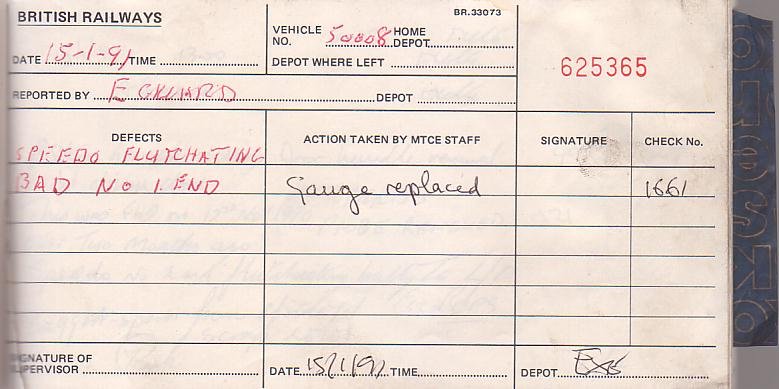 BRITISH RAILWAYS
BR.33073
VEHICLE NO. 50008 HOME DEPOT
625365
DATE 15-1-91 TIME
DEPOT WHERE LEFT
REPORTED BY DEPOT
DEFECTS ACTION TAKEN BY MTCE STAFF SIGNATURE CHECK No.
SPEEDO FLUTCHATING
BAD No 1. END Gauge replaced 1661
SIGNATURE OF SUPERVISOR DATE 15/1/91 TIME DEPOT